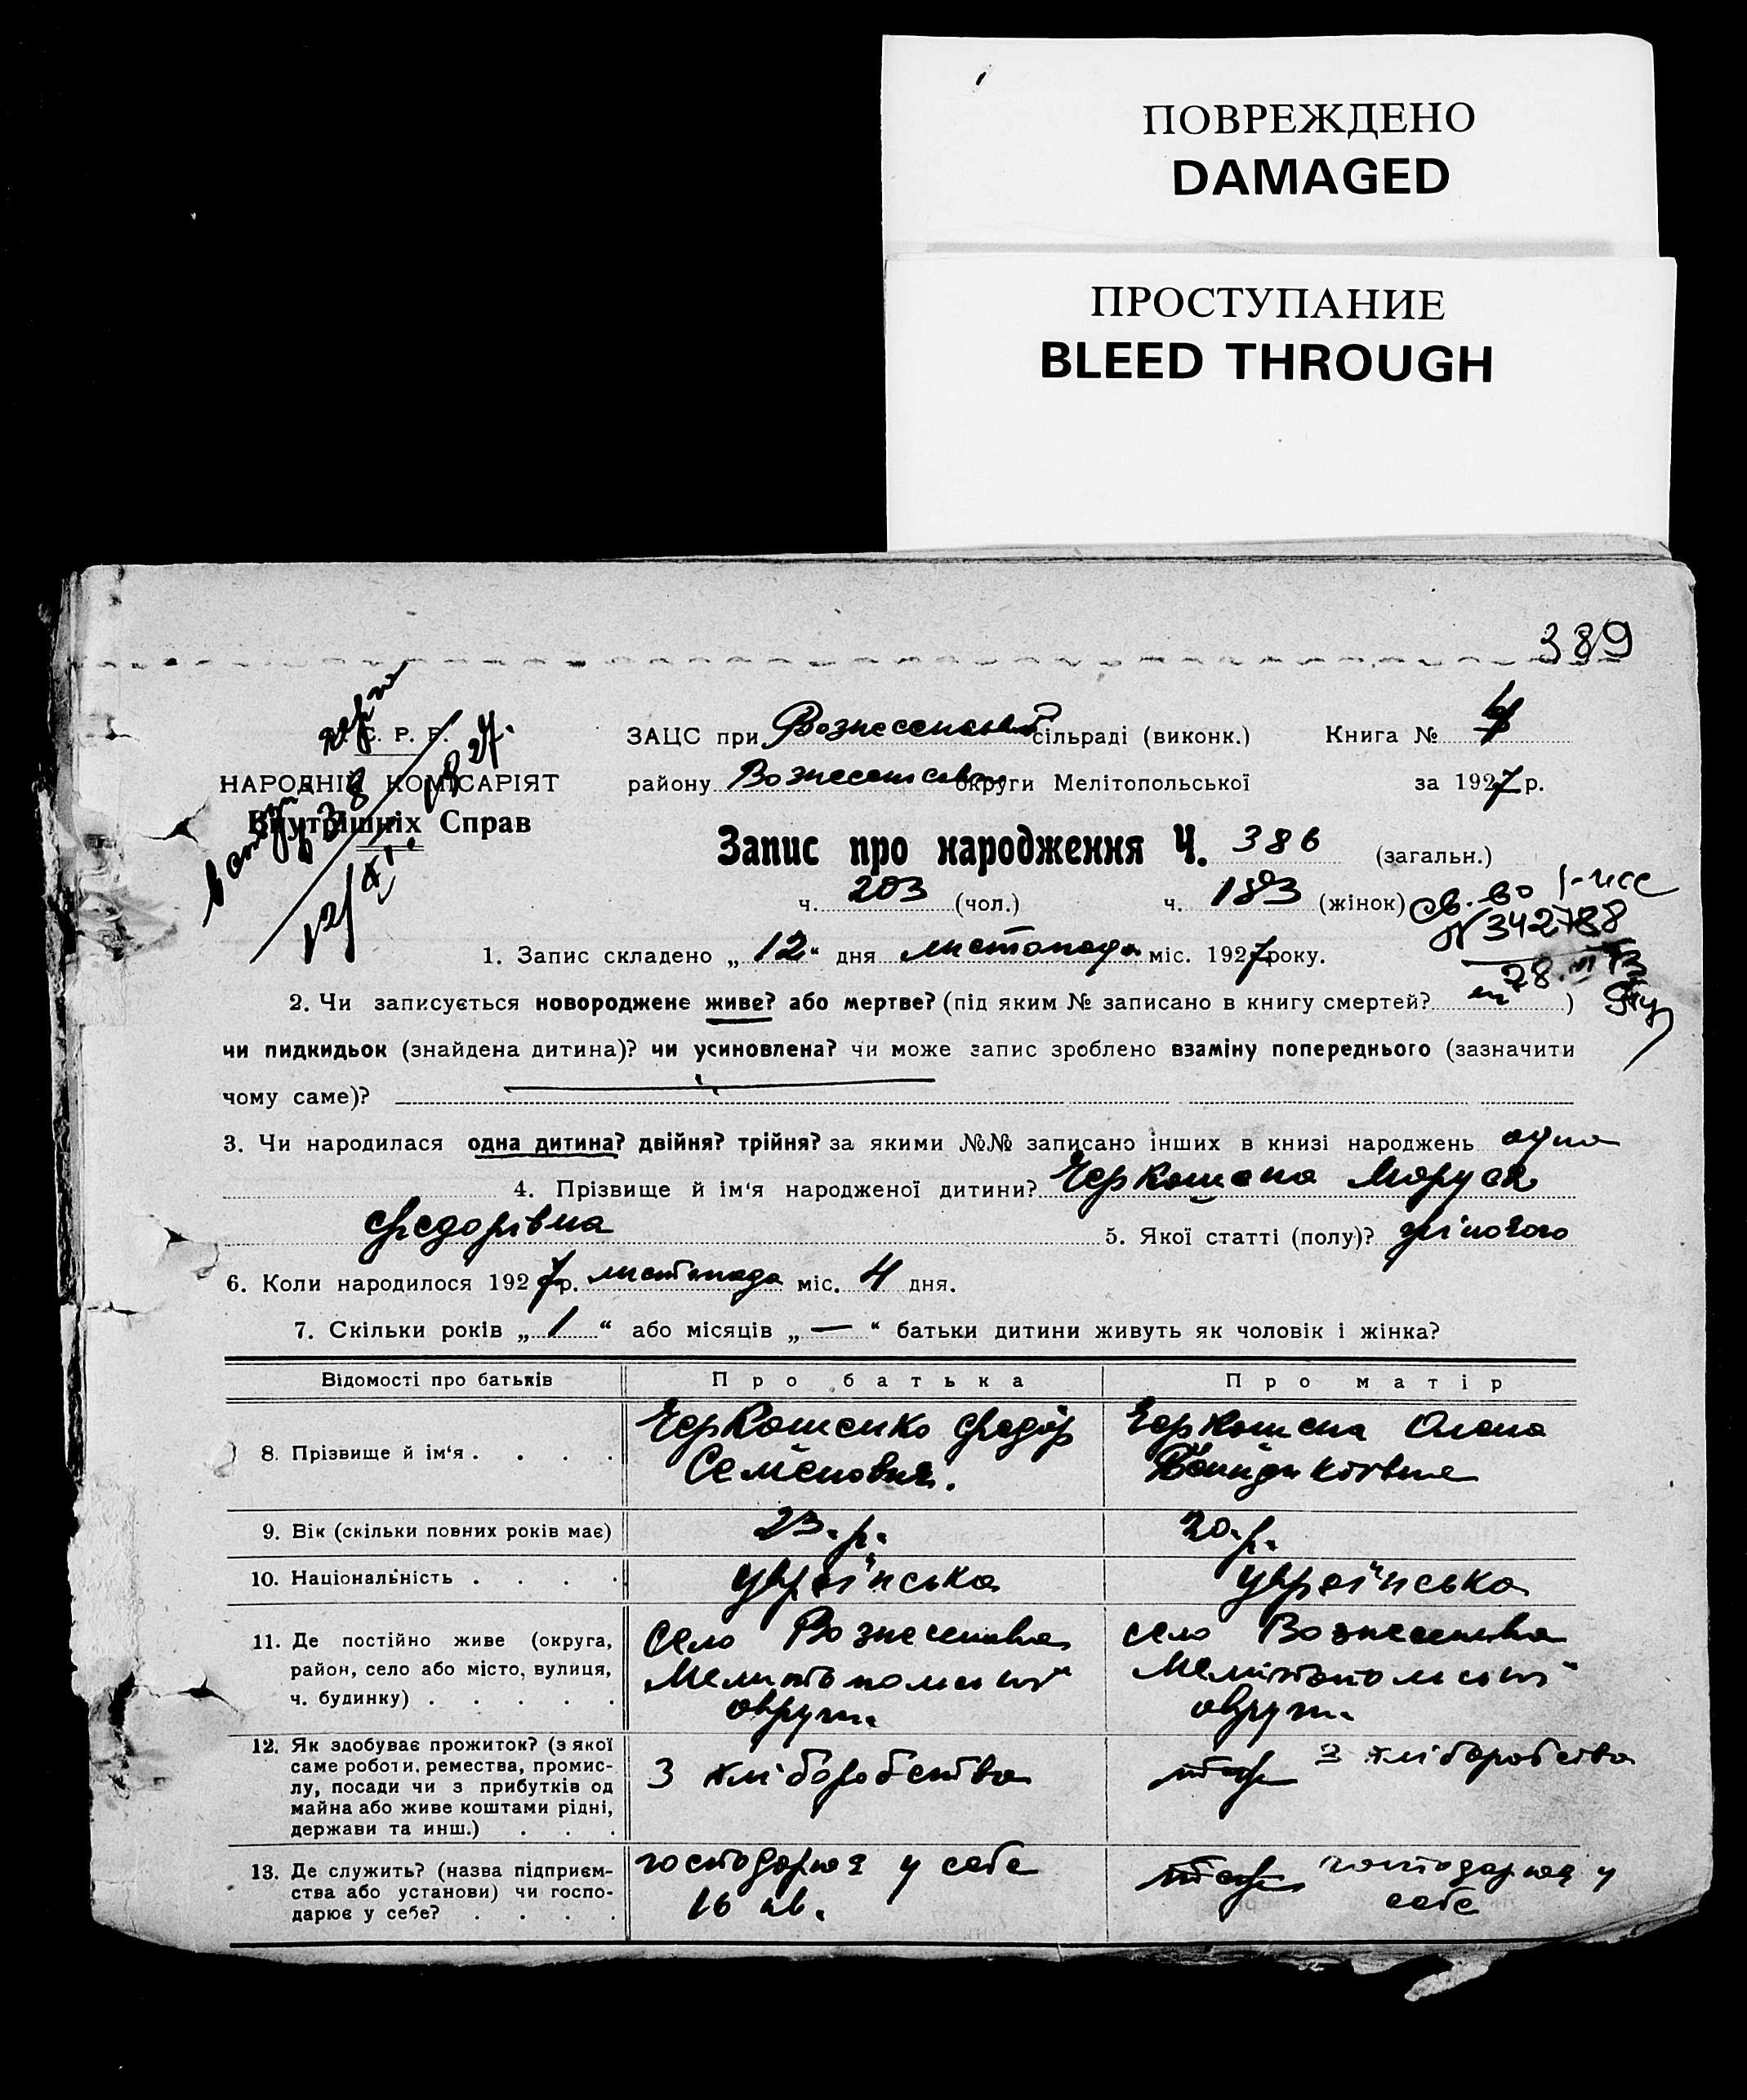 ПОВРЕЖДЕНО
DAMAGED
ПРОСТУПАНИЕ
BLEED THROUGH
389
С. Р. Р.
НАРОДНІЙ КОМІСАРІЯТ
Внутрішніх Справ
ЗАЦС при Вознесенський сільраді (виконк.) Книга № 4
району Вознесенськ округи Мелітопольської за 1927 р.
Запис про народження Ч. 386 (загальн.)
ч. 203 (чол.) ч. 183 (жінок)
св-во
№ 342788
28
1. Запис складено „12“ дня листопада міс. 1927 року.
2. Чи записується новороджене живе? або мертве? (під яким № записано в книгу смертей? )
чи пидкидьок (знайдена дитина)? чи усиновлена? чи може запис зроблено взаміну попереднього (зазначити
чому саме)?
3. Чи народилася одна дитина? двійня? трійня? за якими №№ записано інших в книзі народжень одна
4. Прізвище й ім'я народженої дитини? Черкошена Маруся
Федорівна 5. Якої статті (полу)? жіночого
6. Коли народилося 1927 р. листопада міс. 4 дня.
7. Скільки років „1“ або місяців „—“ батьки дитини живуть як чоловік і жінка?
Відомості про батьків Про батька Про матір
8. Прізвище й ім'я . . . . Черкошенко Федір Черкошена Олена
Семенович.
9. Вік (скільки повних років має) 23. р. 20. р.
10. Національність . . . . українська українська
11. Де постійно живе (округа, село Вознесенка село Вознесенка
район, село або місто, вулиця, Мелитопольської Мелітопольської
ч. будинку) . . . . . округи. округи.
12. Як здобуває прожиток? (з якої
саме роботи, ремества, промис- З хліборобства з хліборобства
лу, посади чи з прибутків од
майна або живе коштами рідні,
держави та инш.) . . .
13. Де служить? (назва підприєм- господарює у себе господарює у
ства або установи) чи госпо- 16 кв. себе
дарює у себе? . . . .